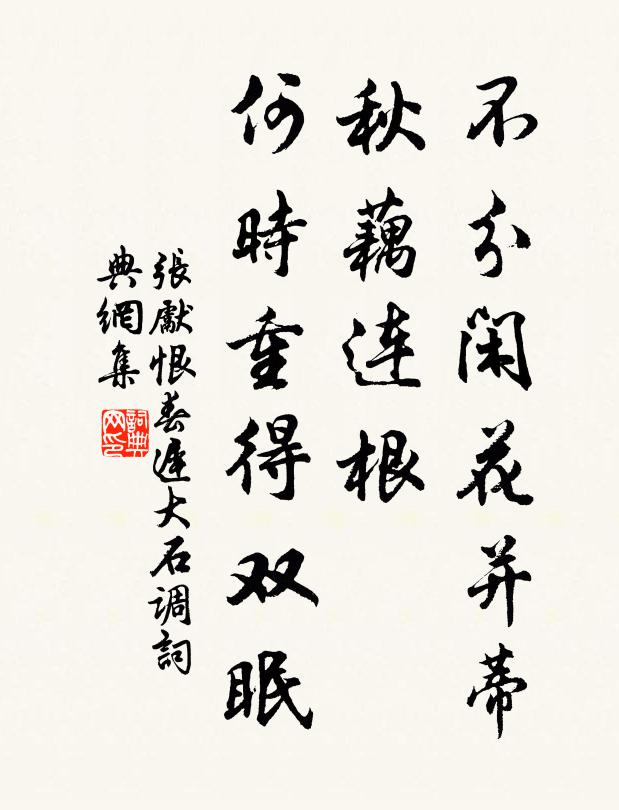 不分闲花并蒂
秋藕连根
何時重得双眠
張獻恨春遲大石调詞
典網集
詞典网印